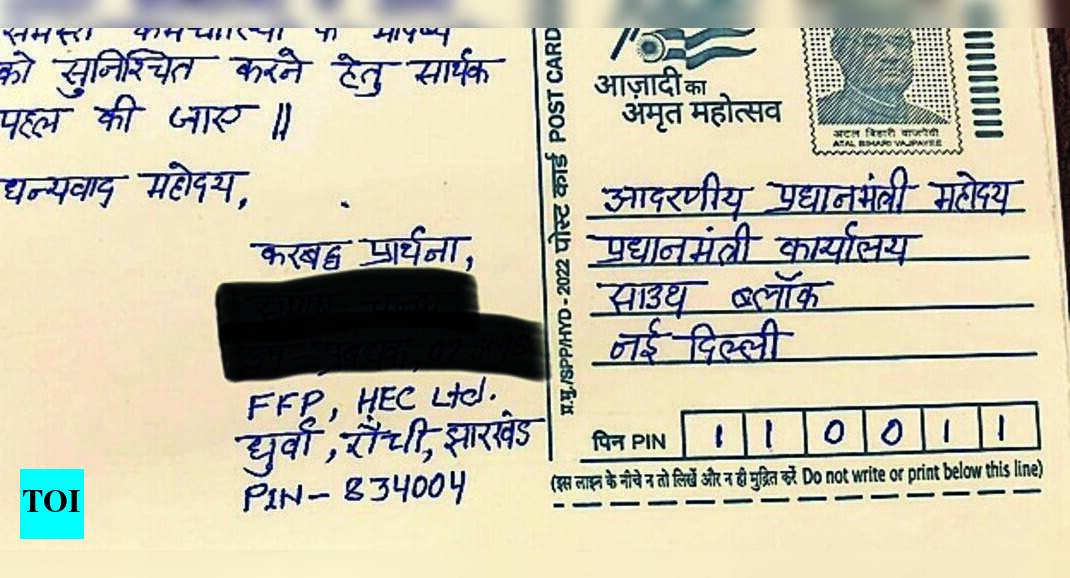 को सुनिश्चित करने हेतु सार्थक
पहल की जाए ||
धन्यवाद महोदय,
करबद्ध प्रार्थना,
FFP, HEC Ltd.
धुर्वा, राँची, झारखंड
PIN - 834004
प्र.मु./SPP/HYD - 2022 पोस्ट कार्ड POST CARD
आज़ादी का
अमृत महोत्सव
अटल बिहारी वाजपेयी
ATAL BIHARI VAJPAYEE
आदरणीय प्रधानमंत्री महोदय
प्रधानमंत्री कार्यालय
साउथ ब्लॉक
नई दिल्ली
पिन PIN 1 1 0 0 1 1
(इस लाइन के नीचे न तो लिखें और न ही मुद्रित करें Do not write or print below this line)
TOI